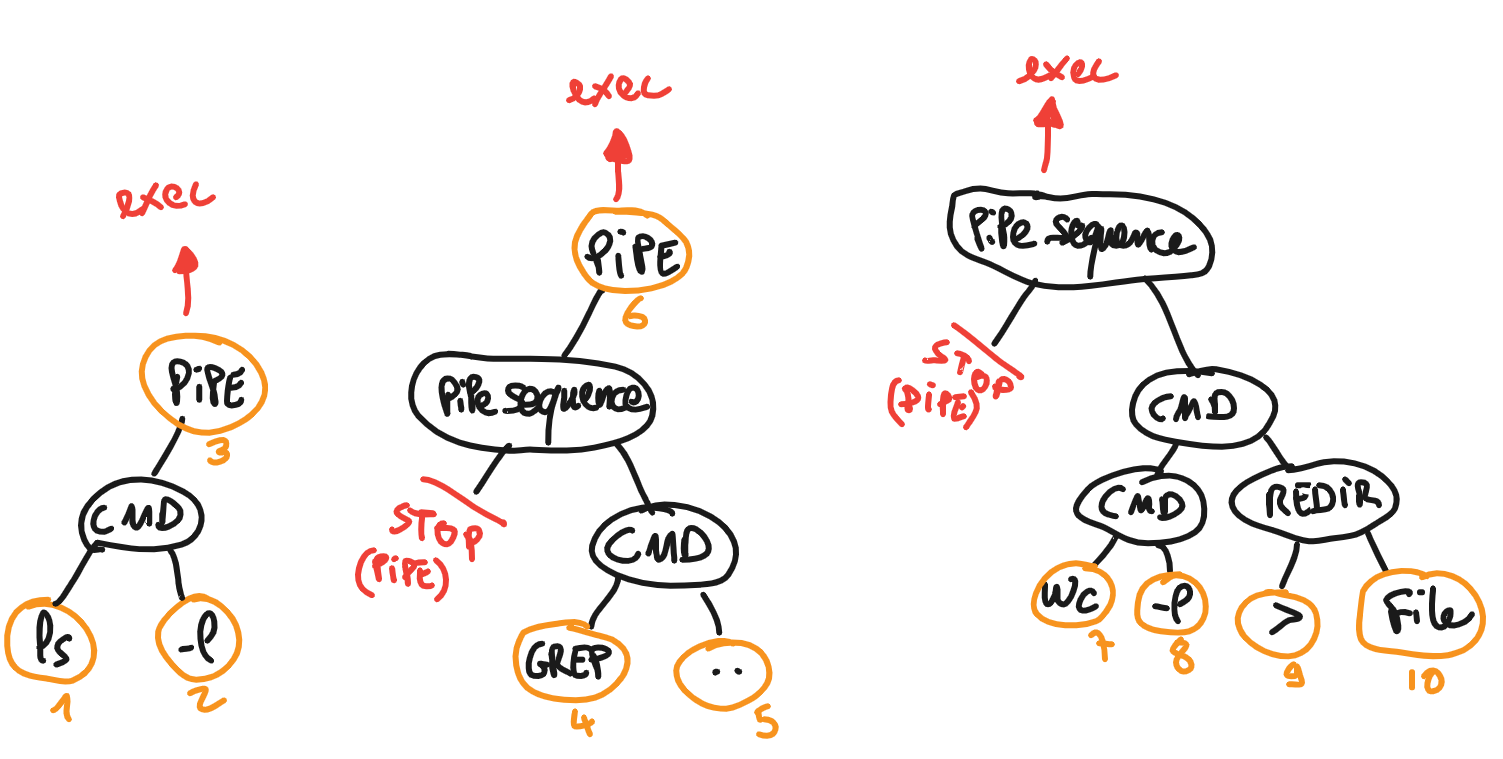 exec
PiPE
3
CMD
Ps
-P
1
2
exec
PiPE
6
Pipe sequence
STOP
(PiPE)
CMD
GREP
..
4
5
exec
Pipe sequence
STOP
(PiPE)
CMD
CMD
REDiR
Wc
-P
>
File
7
8
9
10